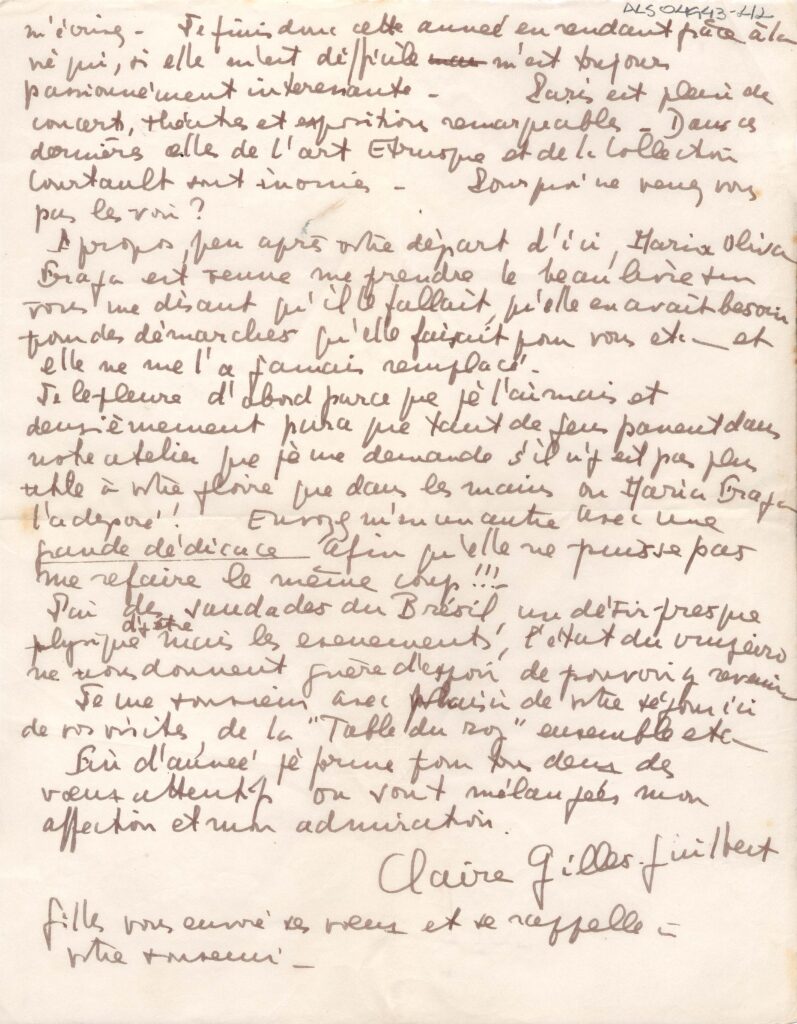 ALS04G43-412
m'écrire - Je finis donc cette anneé en rendant grâce à la
vie qui, si elle m'est difficile m'est toujours
passionnément interessante - Paris est plein de
concerts, théatres et expositions remarquables - Dans ces
dernières celles de l'art Etrusque et de la Collection
Courtault sont inouies - Pourquoi ne venez vous
pas les voir?
A propos, peu après votre départ d'ici, Maria Oliva
Fraga est venue me prendre le beau livre sur
vous me disant qu'il le fallait, qu'elle en avait besoin
pour des démarches qu'elle faisait pour vous etc - et
elle ne me l'a jamais remplacé.
Je le pleure d'abord parce que je l'aimais et
deuxièmement parce que tant de gens passent dans
notre atelier que je me demande s'il n'y est pas plus
utile à votre gloire que dans les mains ou Maria Fraga
l'a deposé!! Envoyez m'en un autre avec une
grande dédicace afin qu'elle ne puisse pas
me refaire le même coup!!!
J'ai des saudades du Brésil, un désir presque
physique d'y être mais les evenements, l'état du cruzeiro
ne nous donnent guère d'espoir de pouvoir y revenir
Je me souviens avec plaisir de votre séjour ici
de vos visites de la "Table du roy" ensemble etc -
Fin d'anneé je forme pour tous deux des
vœux attentifs ou sont mélangées mon
affection et mon admiration.
Claire Gilles-Guilbert
Gilles vous envoie ses vœux et se rappelle à
votre souvenir -